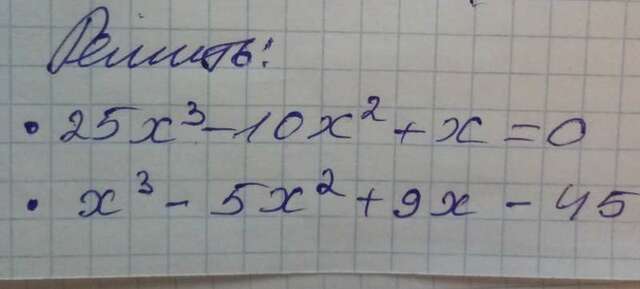 Решить:
• 25x³-10x²+x=0
• x³-5x²+9x-45